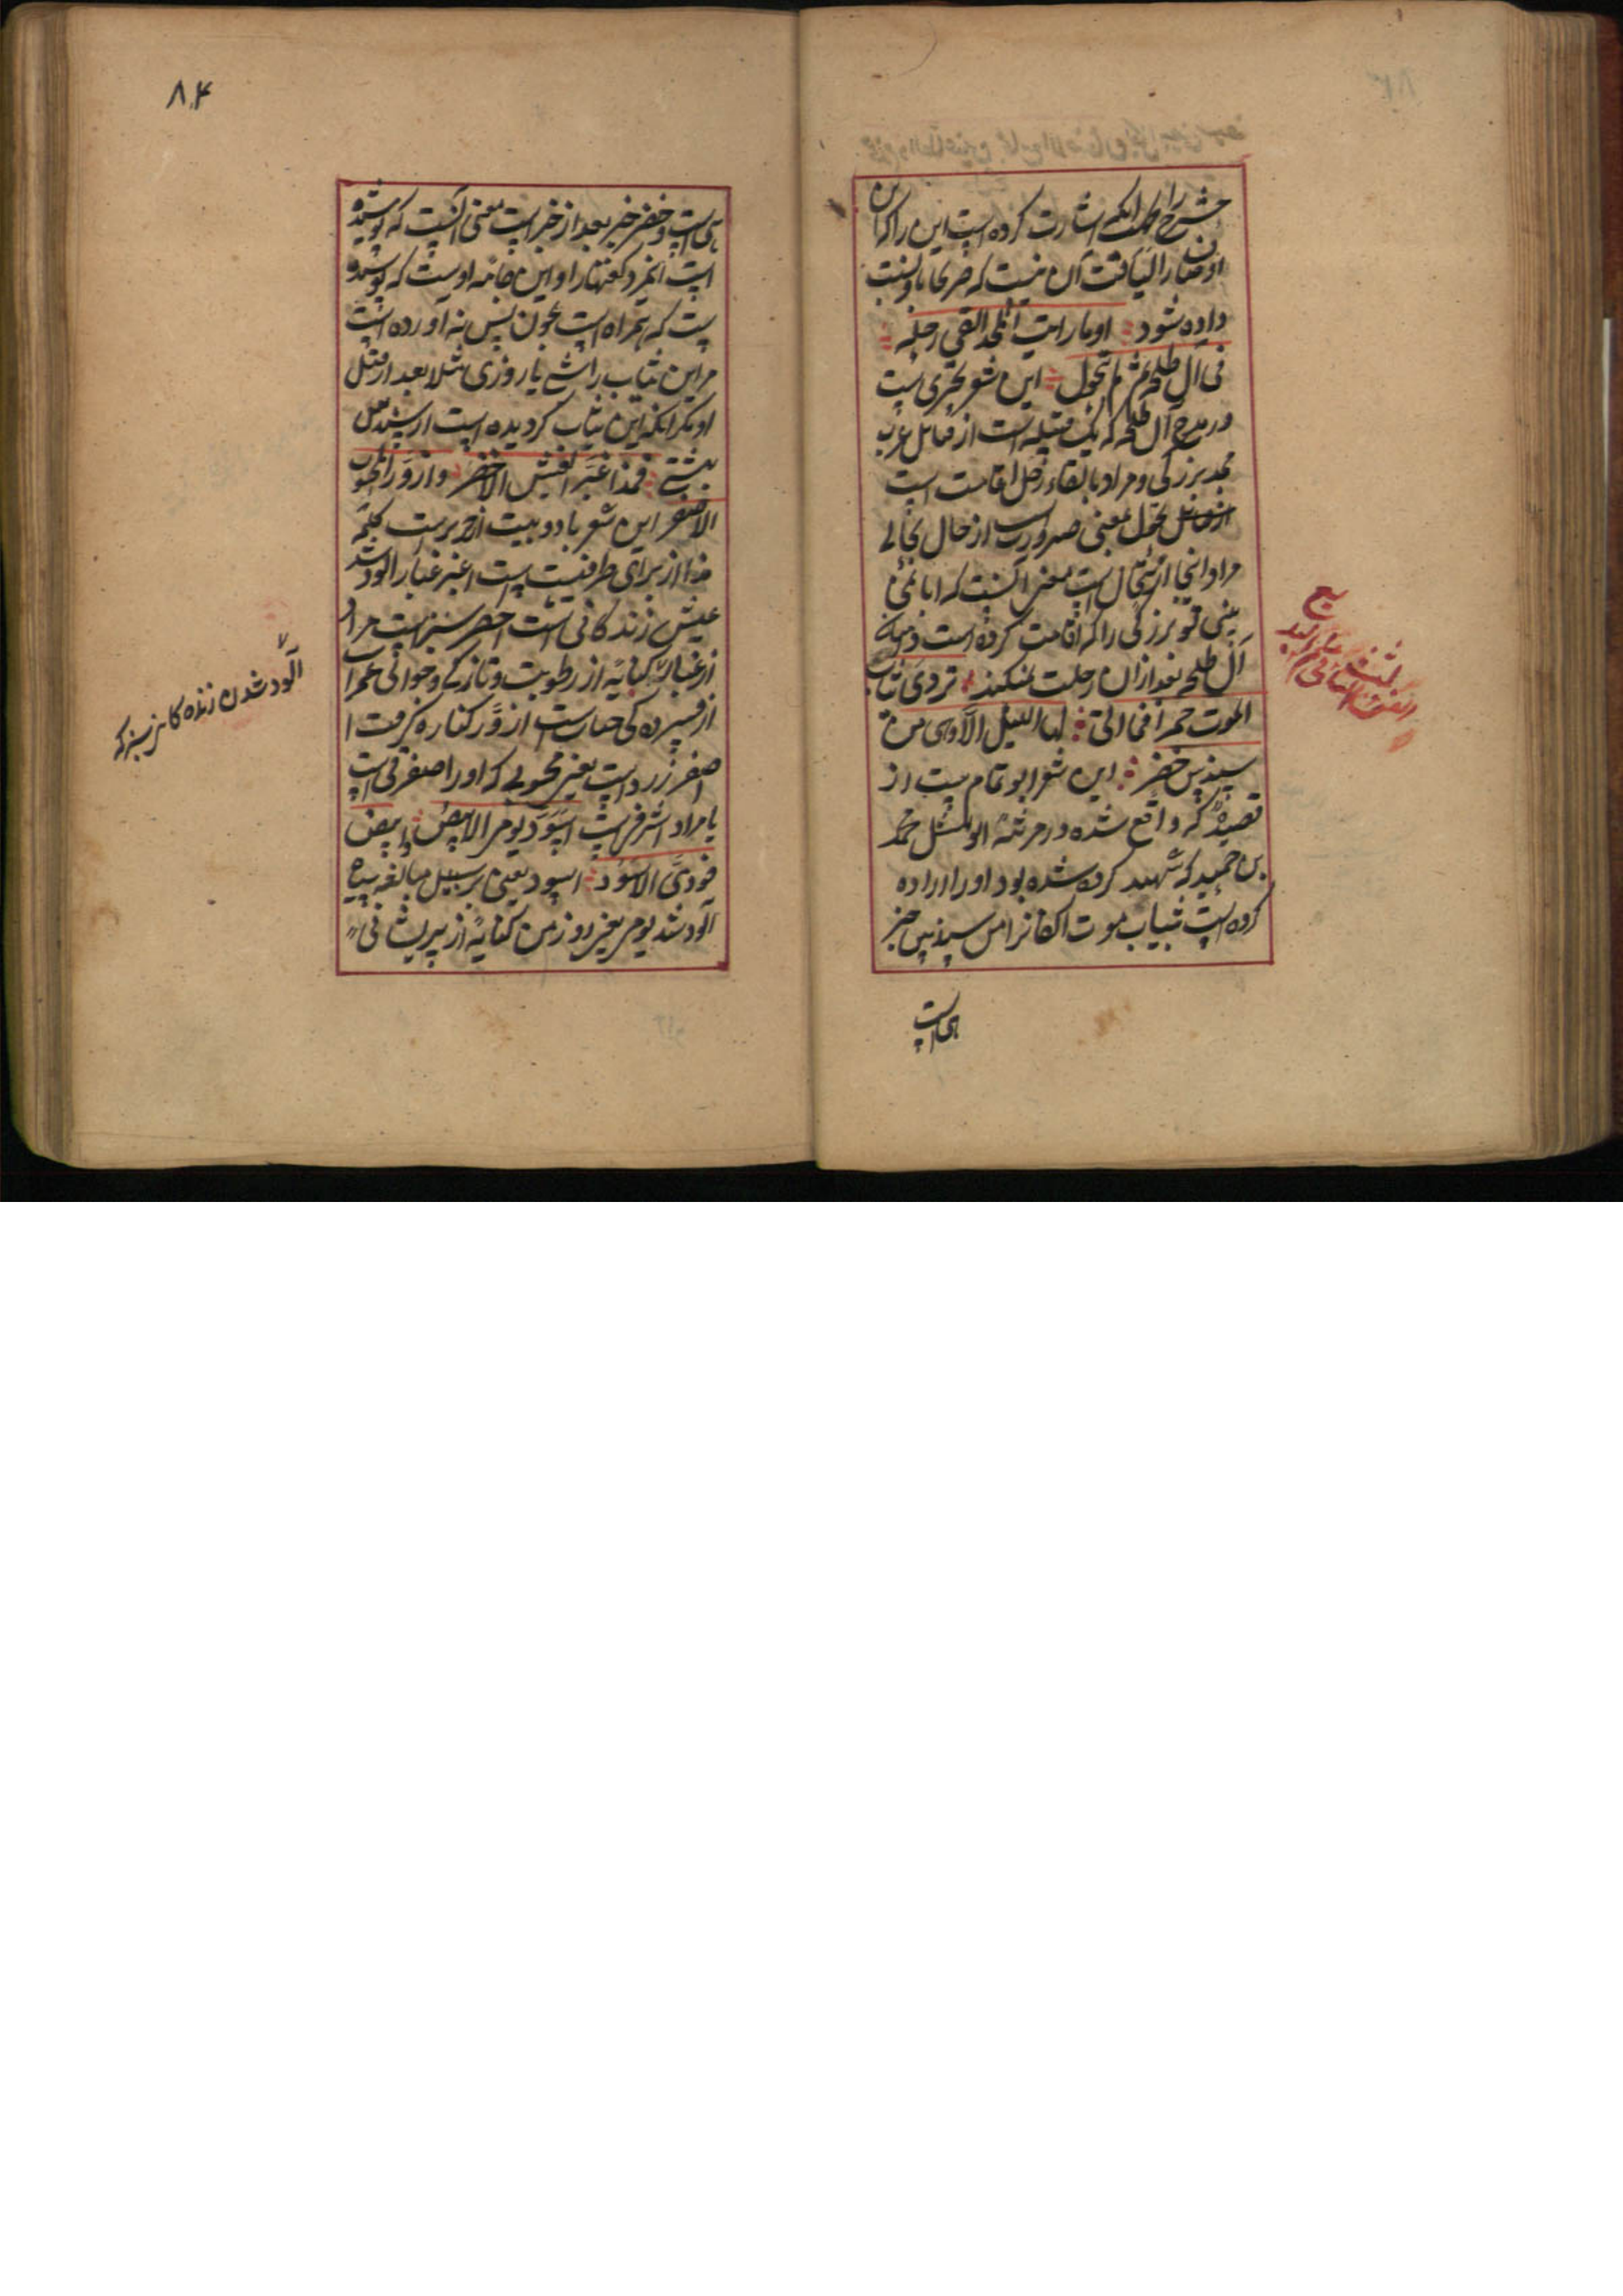 اوصاف را لیاقت آن نیست که صریحا باو نسبت
داده شود اوما رایت المجد القی رحله
فی آل طلحة ثم لم یتحول این شعر بحتری است
در مدح آل طلحه که یک قبیله است از قبائل عرب
مجد بزرگی و مراد بالقاء رحل اقامت است
تحول بمعنی صیرورت از حال بحالی
مراد اینجا ارتحال است معنی آنست که ایا نمی
بینی تو بزرگی را که اقامت کرده است در میان
آل طلحه بعد ازان رحلت نمیکند تردی ثیاب
الموت حمرا فما اتی لها اللیل الا وهی من
سندس خضر این شعر ابو تمام است از
قصیده که واقع شده در مرثیهٔ ابو نهشل محمد
بن حمید که شهید کرده شده بود او را اراده
کرده است بثیاب موت اکفان را من سندس خبر
هی است
۸۴
هی است و خضر خبر بعد از خبر است معنی آنست که پوشیده
است آنمرد کفنها را و این جامه اوست که پوشیده
است که همراه است بخون پس نه آورده است
مر این ثیاب را شب یا روزی مثلا بعد از قتل
او مگر آنکه این ثیاب گردیده است از سندس
بهشتی فمذ اغبر العیش الاخضر و ازور المحبوب
الاصفر این شعر بادو بیت از حریریست کلمه
مذ از برای ظرفیت است اغبر غبار آلود شد
عیش زندگانی است اخضر سبز است مراد
از غبار کنایه از رطوبت و تازگی و جوانی
ازور کناره گرفت
اصفر زرد است یعنی محبوبی که او را اصفر
یا مراد اشرفی است اسود یومی الابیض وابیض
فودی الاسود اسود یعنی بر سبیل مبالغه سیاه
آلود شد یومی یعنی روز من کنایه از پریشانی
آلود شدن زنده کانی سبز که